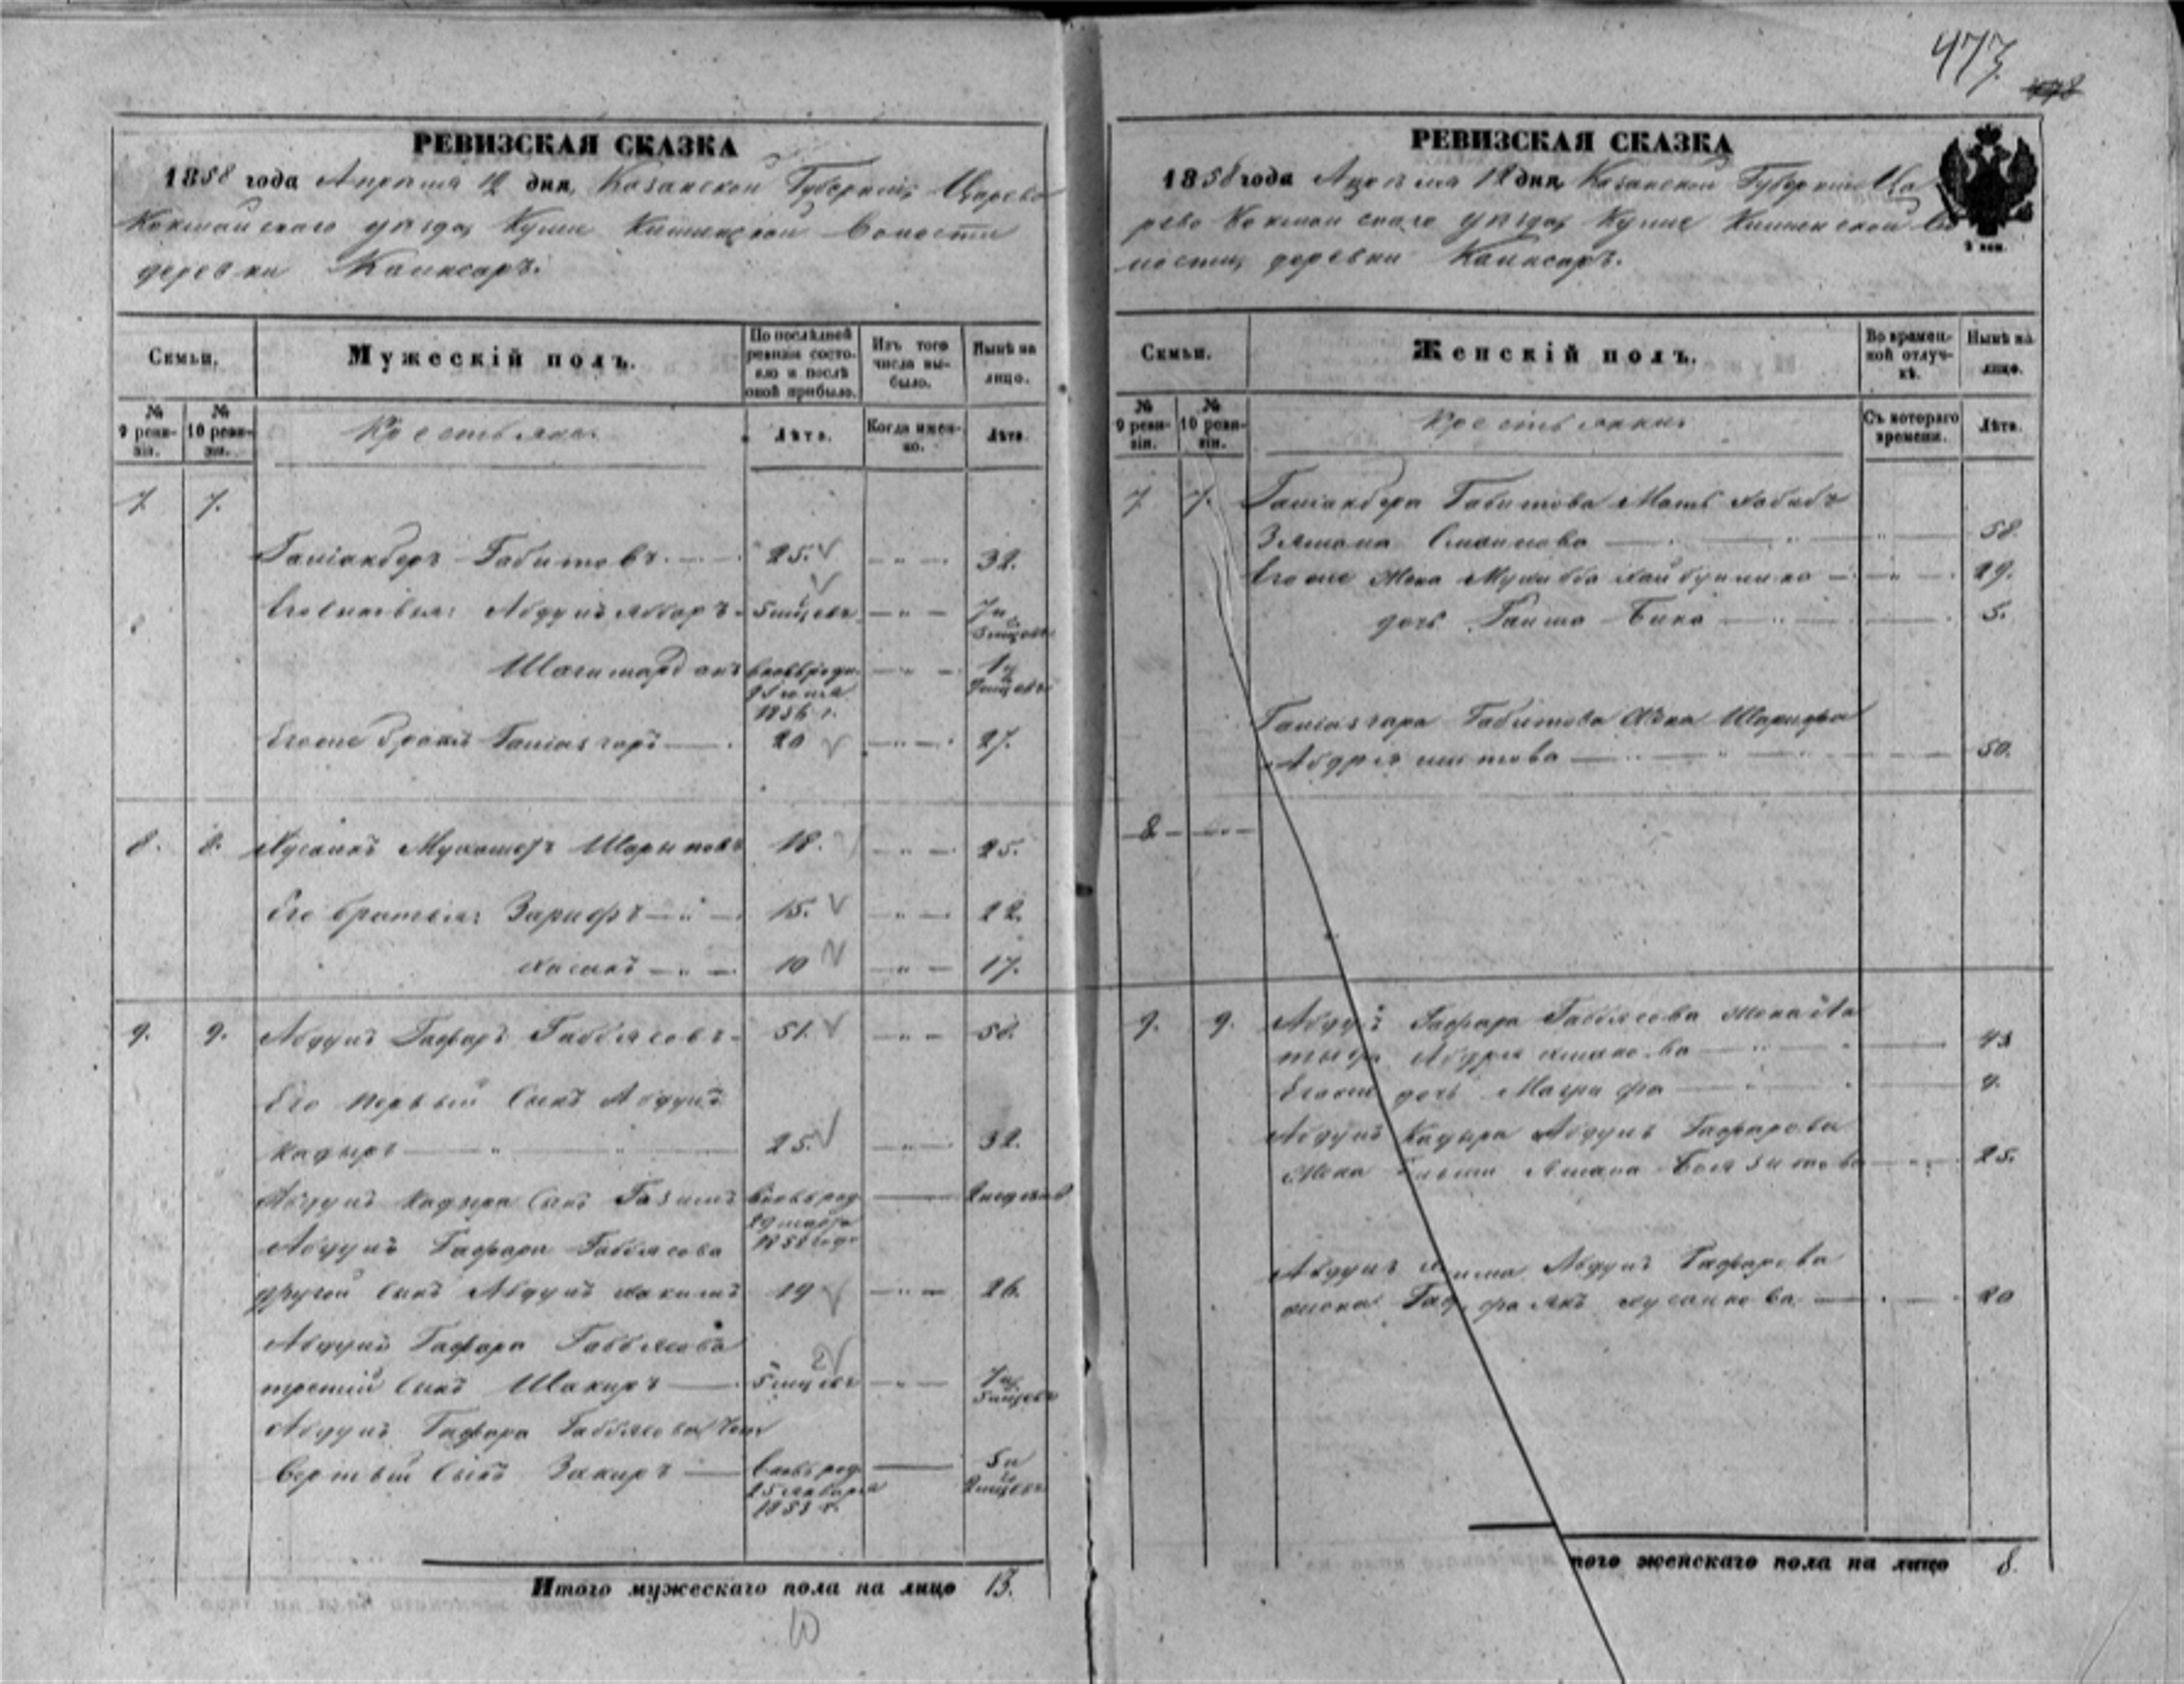 473.
РЕВИЗСКАЯ СКАЗКА
1858 года Апреля 12 дня, Казанской Губернии, Царево
Кокшайскаго уезда, Кулле Киминской Волости
деревни Каинсаръ.
Семьи.
Мужескій полъ.
По послѣдней ревизіи состояло и послѣ оной прибыло.
Изъ того числа выбыло.
Нынѣ на лицо.
№ 9 ревизіи.
№ 10 ревизіи.
Крестьяне.
Лѣта.
Когда именно.
Лѣта.
7. 7.
Галіакберъ Габитовъ 25. 32.
Его сыновья: Абдулъ Яббаръ 5 мцевъ 7 и 5 мцевъ
Шагимарданъ вновь родил. 1856 г. 1 и 9 мцевъ
Его же братъ Галіасгаръ 20 27.
8. 8. Хусаинъ Мухаметъ Шариповъ 18. 25.
Его братья: Зарифъ 15. 22.
Хасанъ 10 17.
9. 9. Абдулъ Гафаръ Габбясовъ 51. 58.
Его первый сынъ Абдулъ
Кадыръ 25. 32.
Абдулъ Кадыра сынъ вновь род. 29 марта 1858 года 2 недели
Абдулъ Гафара Габбясова
другой сынъ Абдулъ Хакимъ 19 26.
Абдулъ Гафара Габбясова
третий сынъ Шакиръ 5 мцевъ 7 и 5 мцевъ
Абдулъ Гафара Габбясова чет
вертый сынъ Закиръ вновь род. 25 января 1853 г. 5 и 2 мцевъ
Итого мужескаго пола на лицо 13.
РЕВИЗСКАЯ СКАЗКА
1858 года Апреля 12 дня, Казанской Губернии Ца
рево Кокшайскаго уезда, Кулле Киминской Во
лости, деревни Каинсаръ.
2 коп.
Семьи.
Женскій полъ.
Во временной отлучкѣ.
Нынѣ на лицо.
№ 9 ревизіи.
№ 10 ревизіи.
Крестьянки.
Съ котораго времени.
Лѣта.
7 7. Галіакбера Габитова Мать Хабибъ
58.
Его же жена 29.
дочь Бика 5.
Галіасгара Габитова жена Шарифа
50.
8
9. 9. Абдулъ Гафара Габбясова жена
43
Его же дочь 9.
Абдулъ Кадыра Абдулъ Гафарова
жена 25.
Абдулъ Абдулъ Гафарова
жена Хусаинова 20
того женскаго пола на лицо 8.